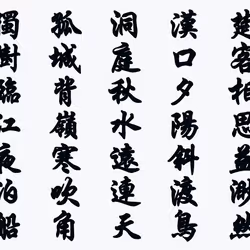 楚客相思益渺然
漢口夕陽斜渡鳥
洞庭秋水遠連天
孤城背嶺寒吹角
獨樹臨江夜泊船